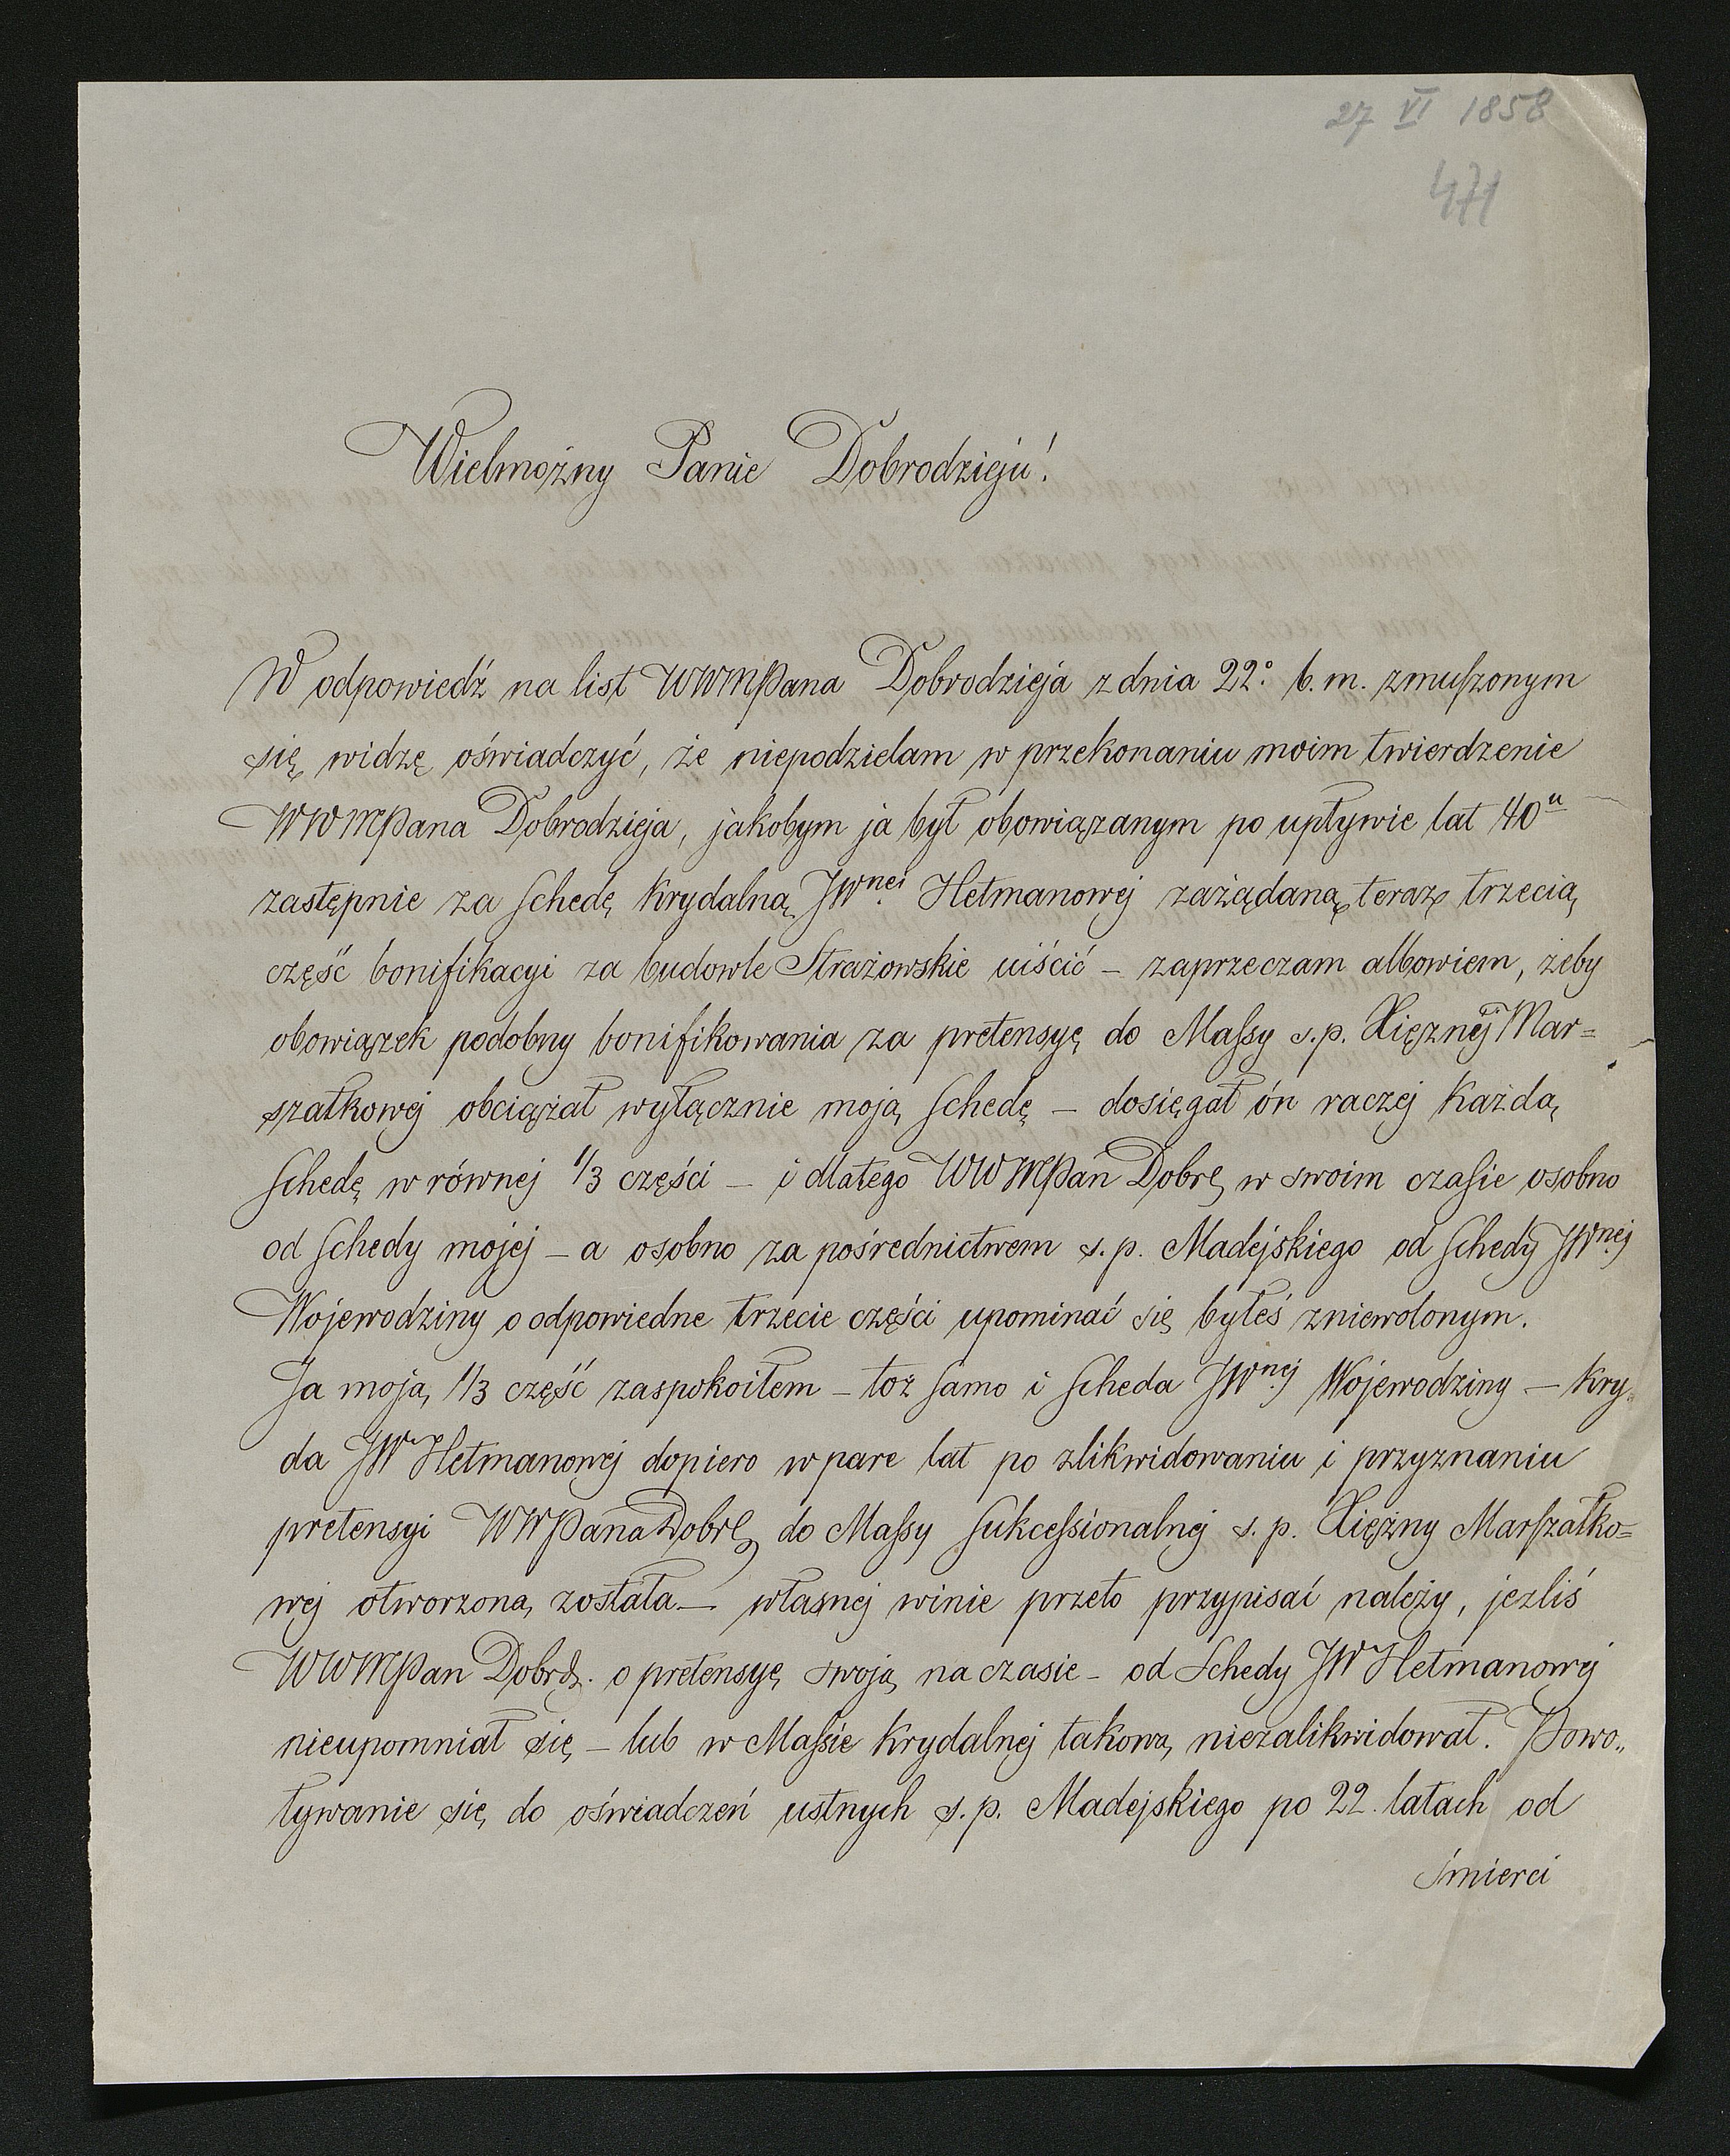 27 VI 1858
471
Wielmożny Panie Dobrodzieju!
W odpowiedź na list WWMPana Dobrodzieja z dnia 22º b. m. zmuszonym
się widzę oświadczyć, że niepodzielam w przekonaniu moim twierdzenie
WWMPana Dobrodzieja, jakobym ja był obowiązanym po upływie lat 40u
zastępnie za Schedę Krydalną JWnej Hetmanowej zażądaną teraz trzecią
część bonifikacyi za budowle Strażowskie uiścić – zaprzeczam albowiem, żeby
obowiązek podobny bonifikowania za pretensyę do Massy s. p. Xiężnej Mar=
szałkowej obciążał wyłącznie moją Schedę – dosięgał ón raczej Każdą
Schedę w równej 1/3 części – i dlatego WWMPan Dobr. w swoim czasie osobno
od Schedy mojej – a osobno za pośrednictwem s. p. Madejskiego od Schedy JWnej
Wojewodziny o odpowiedne trzecie części upominać się byłeś zniewolonym.
Ja moją 1/3 część zaspokoiłem – toż samo i Scheda JWnej Wojewodziny – Kry=
da JW Hetmanowej dopiero w pare lat po zlikwidowaniu i przyznaniu
pretensyi WWPana Dobr. do Massy Sukcessionalnej s. p. Xiężny Marszałko=
wej otworzoną została – własnej winie przeto przypisać należy, jezliś
WWMPan Dobrdz. o pretensyę swoją na czasie – od Schedy JW Hetmanowej
nieupomniał się – lub w Massie Krydalnej takową niezalikwidował. Powo„
ływanie się do oświadczeń ustnych s. p. Madejskiego po 22. latach od
śmierci